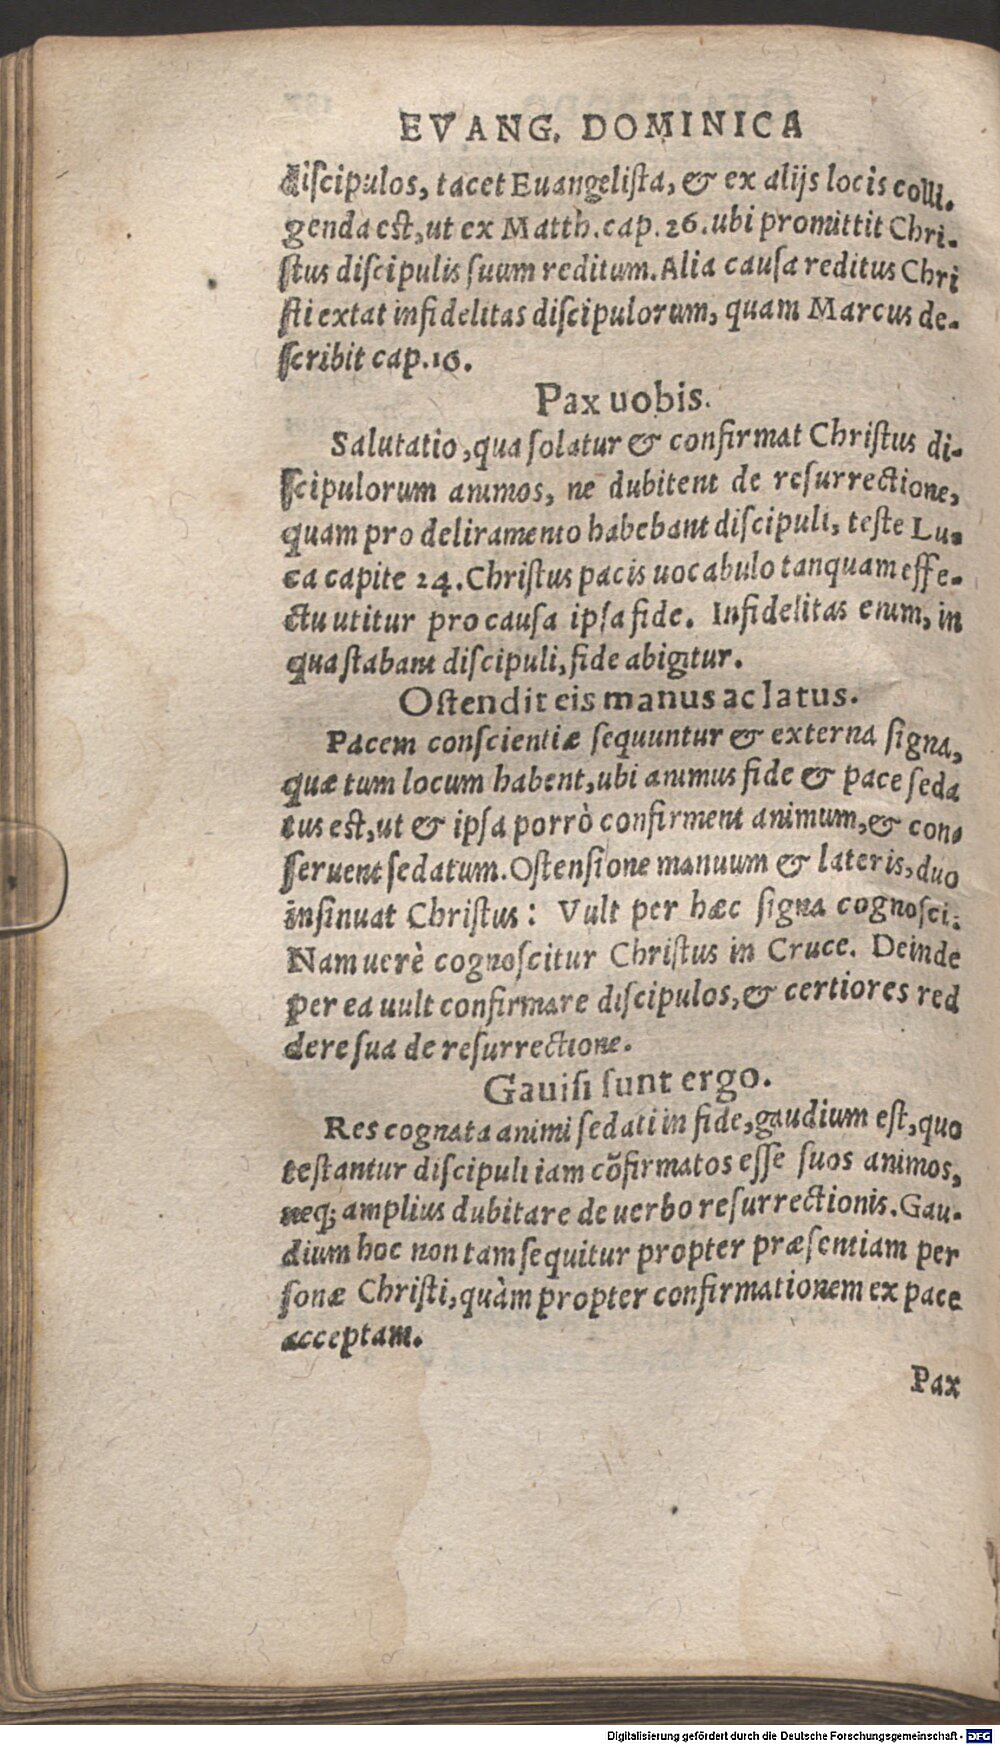 EVANG. DOMINICA
diſcipulos, tacet Euangeliſta, & ex alijs locis colli-
genda eſt, ut ex Matth. cap. 26. ubi promittit Chri-
ſtus diſcipulis ſuum reditum. Alia cauſa reditus Chri
ſti extat infidelitas diſcipulorum, quam Marcus de-
ſcribit cap. 16.
Pax uobis.
Salutatio, qua ſolatur & confirmat Chriſtus di-
ſcipulorum animos, ne dubitent de reſurrectione,
quam pro deliramento habebant diſcipuli, teſte Lu-
ca capite 24. Chriſtus pacis uocabulo tanquam effe-
ctu utitur pro cauſa ipſa fide. Infidelitas enim, in
qua ſtabant diſcipuli, fide abigitur.
Oſtendit eis manus ac latus.
Pacem conſcientiæ ſequuntur & externa ſigna,
quæ tum locum habent, ubi animus fide & pace ſeda
tus eſt, ut & ipſa porrò confirment animum, & con-
ſeruent ſedatum. Oſtenſione manuum & lateris, duo
inſinuat Chriſtus: Vult per hæc ſigna cognoſci.
Nam uerè cognoſcitur Chriſtus in Cruce. Deinde
per ea uult confirmare diſcipulos, & certiores red
dere ſua de reſurrectione.
Gauiſi ſunt ergo.
Res cognata animi ſedati in fide, gaudium eſt, quo
teſtantur diſcipuli iam cõfirmatos eſſe ſuos animos,
neq; amplius dubitare de uerbo reſurrectionis. Gau-
dium hoc non tam ſequitur propter præſentiam per
ſonæ Chriſti, quàm propter confirmationem ex pace
acceptam.
Pax
Digitalisierung gefördert durch die Deutsche Forschungsgemeinschaft - DFG